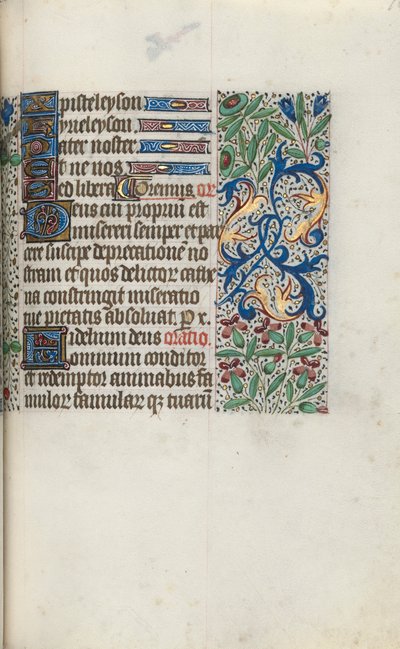 Xpisteleyson
Kyrieleyson
Pater noster
Et ne nos
Sed libera Oremus or
Deus cui propriũ est
misereri semper et par
cere suscipe deprecationẽ no
stram et quos delictor cathe
na constringit miseratio
tue pietatis absoluat. P x.
Fidelium deus oratio.
Omnium conditor
et redemptor animabus fa
mulor famular qz tuarũ